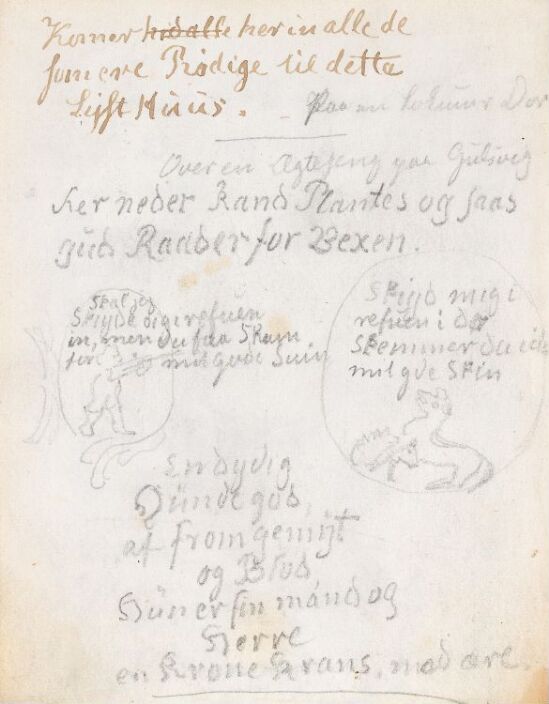 Komer hid alle her in alle de
som ere Rødige til dette
Lijst Huus.
Paa en Lokums Dør
Over en Ægteseng paa Gulsvig
Her neder Kand Plantes og saas
gud Raader for Vexen.
Skal jeg
Skiyde dig i refuen
in, men du faa Skam
for mit gode Skin
Skiyd mig i
refuen i der
Skemmer du icke
mit gde Skin
En dydig
Qvinde god,
af from gemyt
og Blod
Hun er sin mand og
Herre
en Krone Krans, med ære.